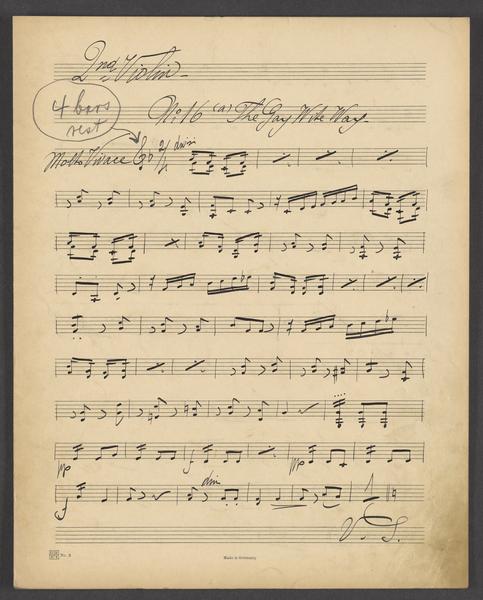 2nd Violin
No 16 (a) The Gay Wite Way
4 bars
rest
Molto Vivace 2/4 divisi
pp f pp
f dim
V. S.
No. 3 Made in Germany